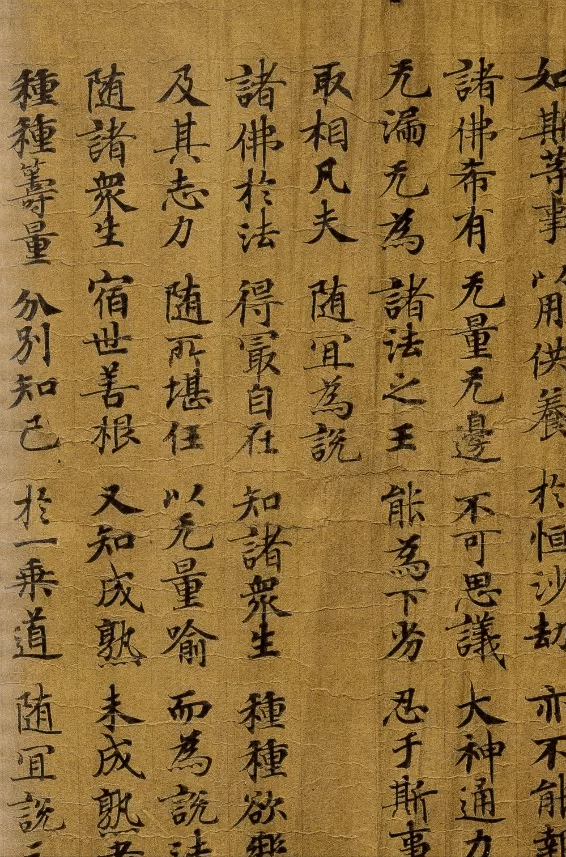 如斯等事 以用供養 於恒沙劫 亦不能報
諸佛希有 无量无邊 不可思議 大神通力
无漏无為 諸法之王 能為下劣 忍于斯事
取相凡夫 随冝為説
諸佛於法 得冣自在 知諸衆生 種種欲樂
及其志力 随所堪任 以无量喻 而為説法
随諸衆生 宿世善根 又知成熟 未成熟者
種種籌量 分別知已 於一乗道 随冝説三